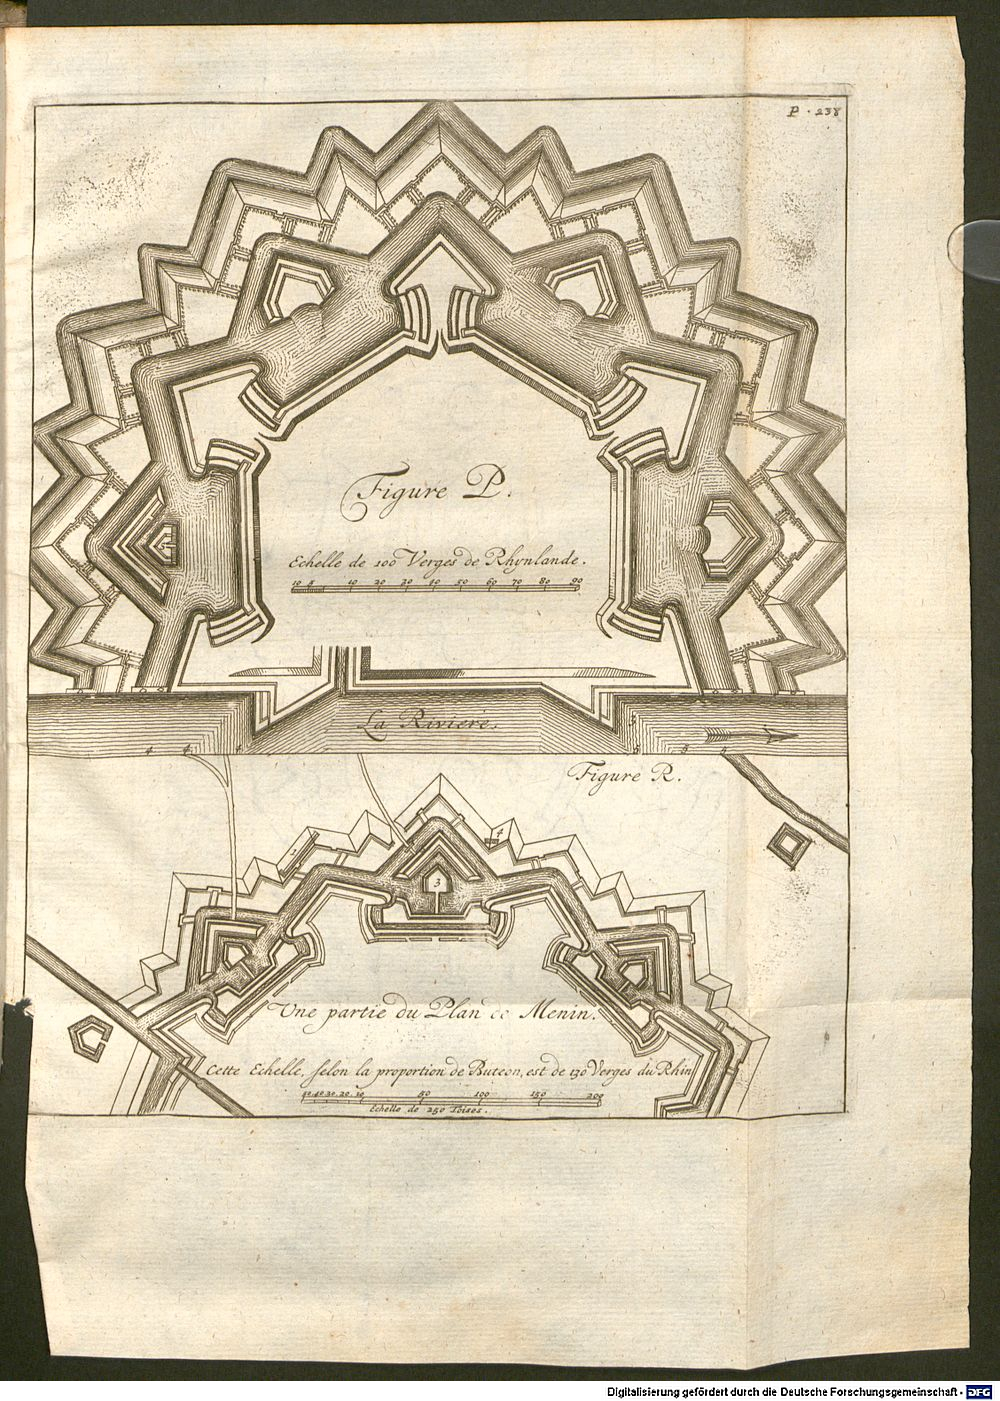 P. 238
Figure P.
Echelle de 100 Verges de Rhynlande.
10 5 10 20 30 40 50 60 70 80 90
5
La Riviere.
4 4 4 5 5 5
Figure R.
2
4
3
Une partie du Plan de Menin.
Cette Echelle, selon la proportion de Buteon, est de 130 Verges du Rhin
50 40 30 20 10 50 100 150 200
Echelle de 250 Toises.
Digitalisierung gefördert durch die Deutsche Forschungsgemeinschaft - DFG